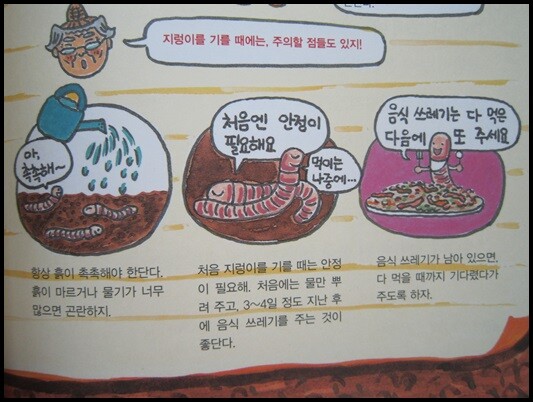 지렁이를 기를 때에는, 주의할 점들도 있지!
아,
촉촉해~
처음엔 안정이
필요해요
먹이는
나중에…
음식 쓰레기는 다 먹은
다음에 또 주세요
항상 흙이 촉촉해야 한단다.
흙이 마르거나 물기가 너무
많으면 곤란하지.
처음 지렁이를 기를 때는 안정
이 필요해. 처음에는 물만 뿌
려 주고, 3~4일 정도 지난 후
에 음식 쓰레기를 주는 것이
좋단다.
음식 쓰레기가 남아 있으면,
다 먹을 때까지 기다렸다가
주도록 하자.